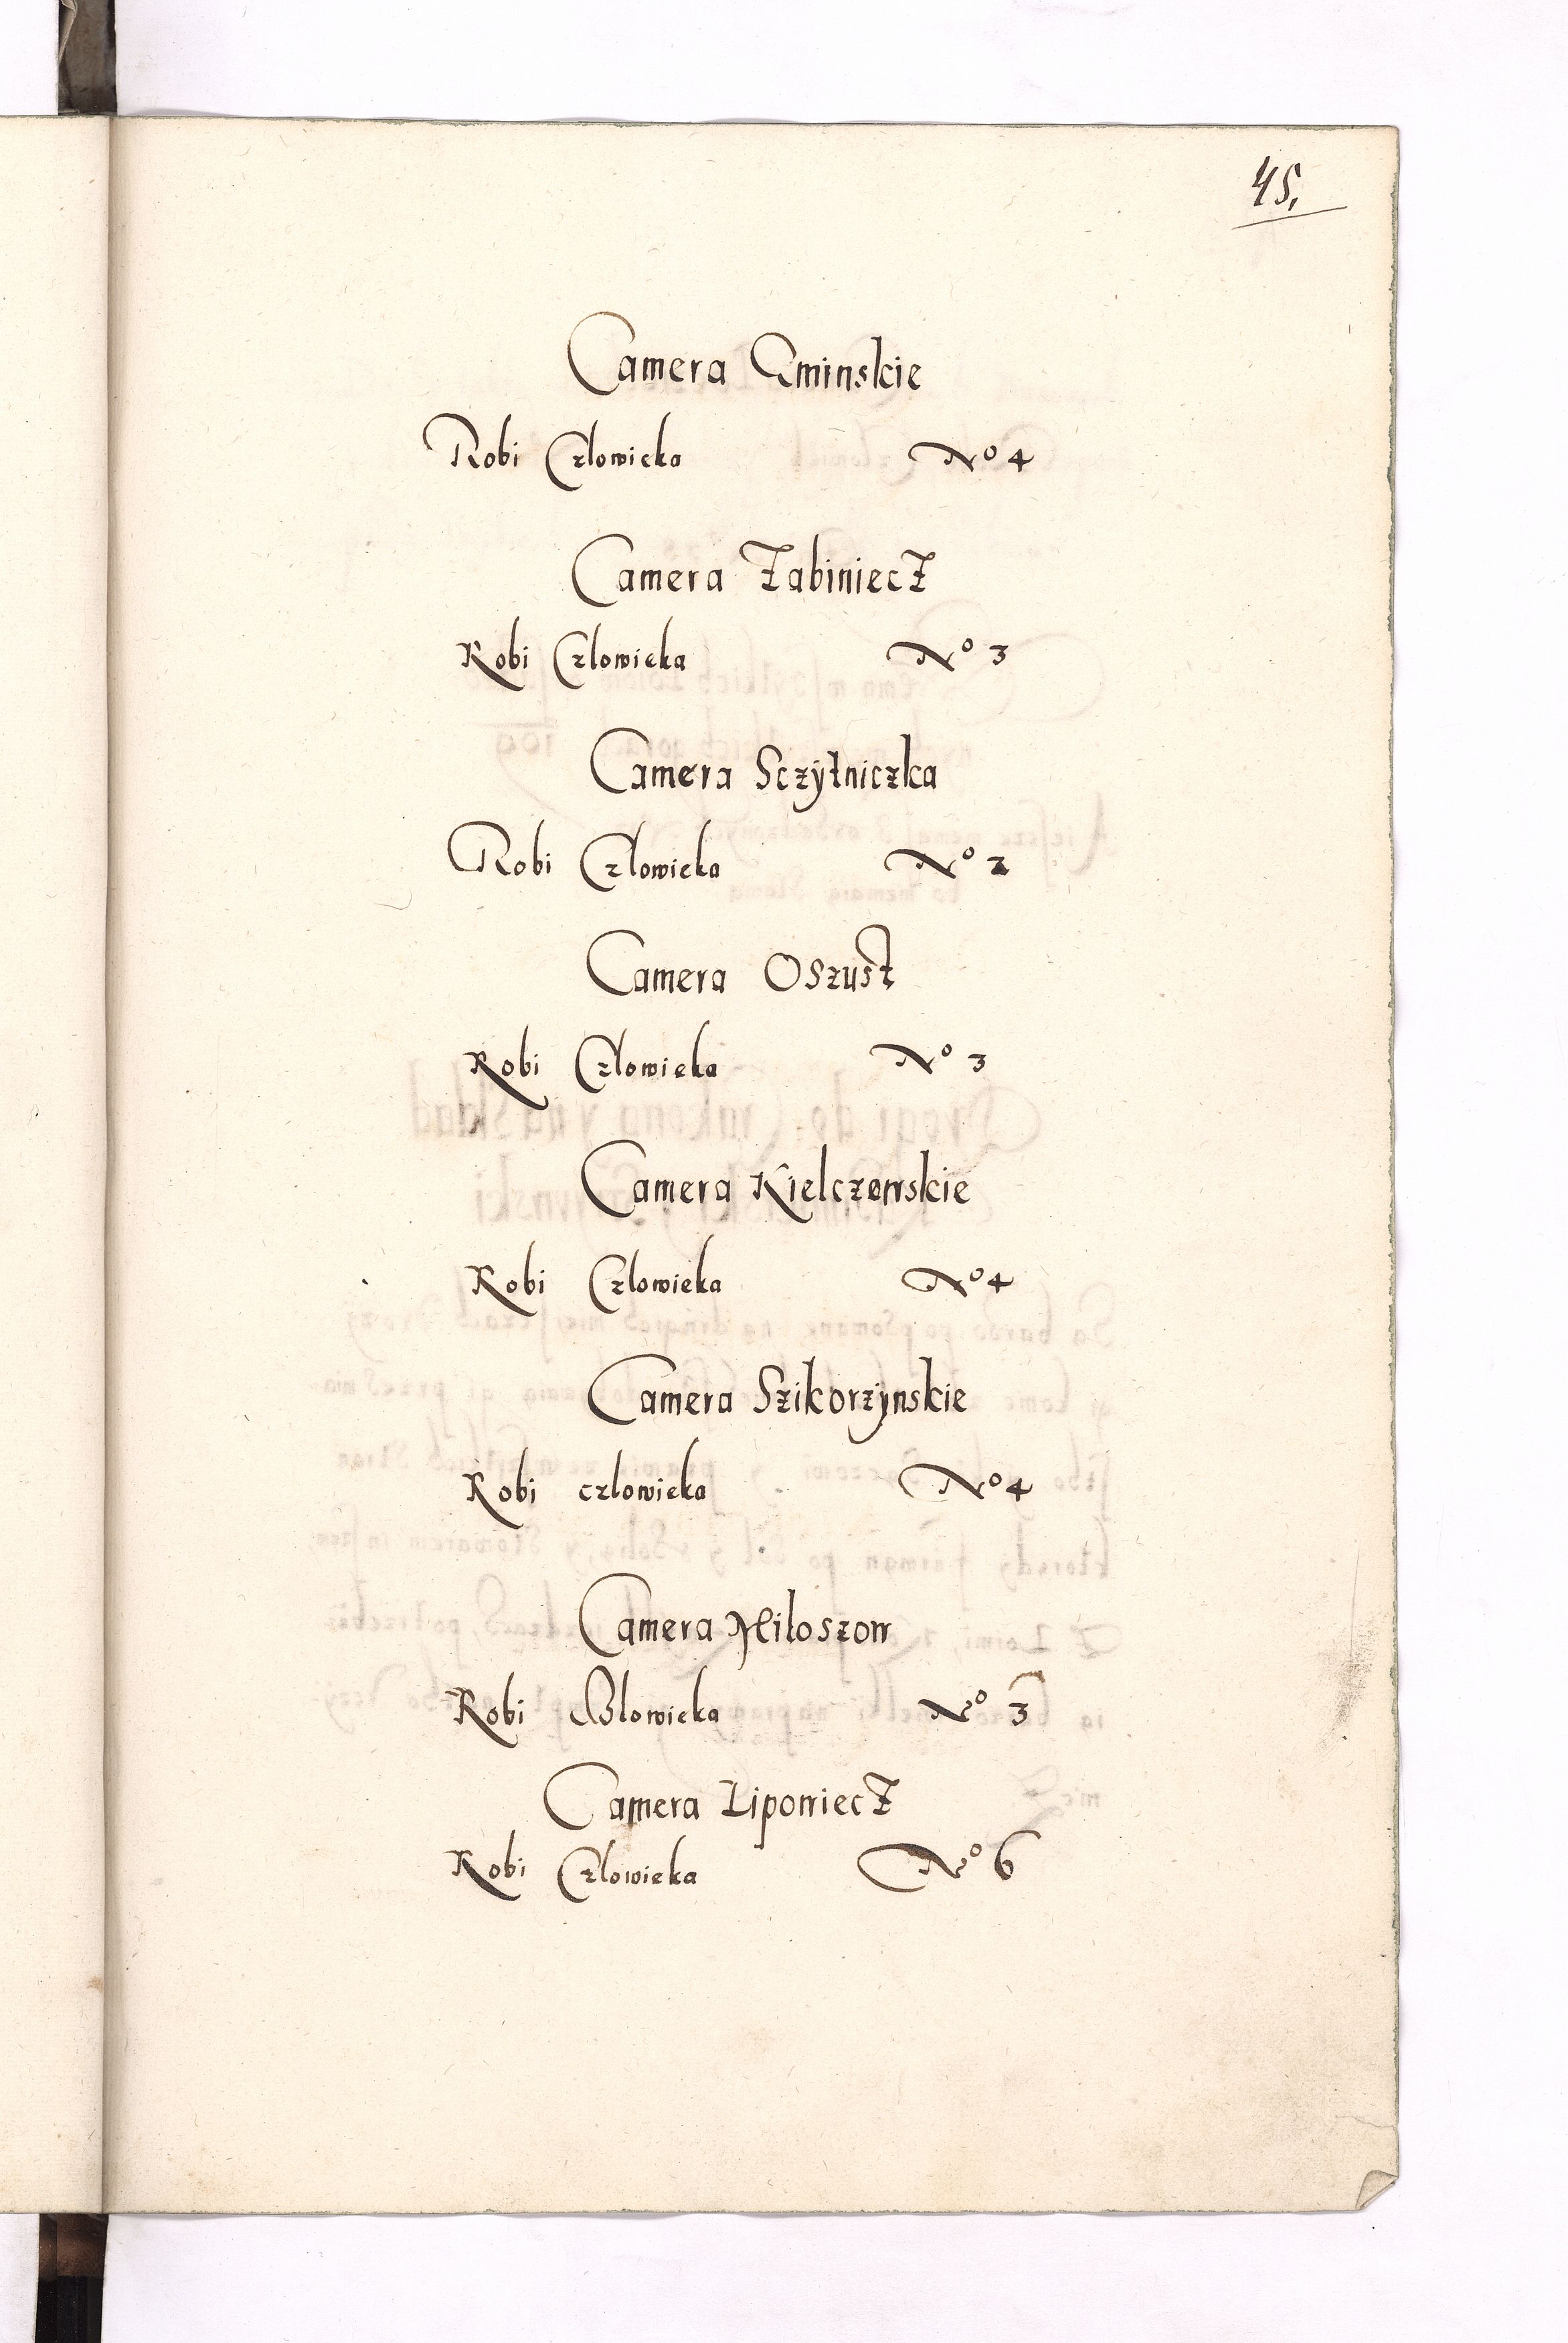 45.
Camera Gminskie
Robi Człowieka No 4
Camera Zabiniecz
Robi Człowieka No 3
Camera Sczyłniczka
Robi Człowieka No 2
Camera Oszust
Robi Człowieka No 3
Camera Kielczowskie
Robi Człowieka No 4
Camera Szikorzynskie
Robi człowieka No 4
Camera Miloszow
Robi Człowieka No 3
Camera Lipowiecz
Robi Człowieka No 6